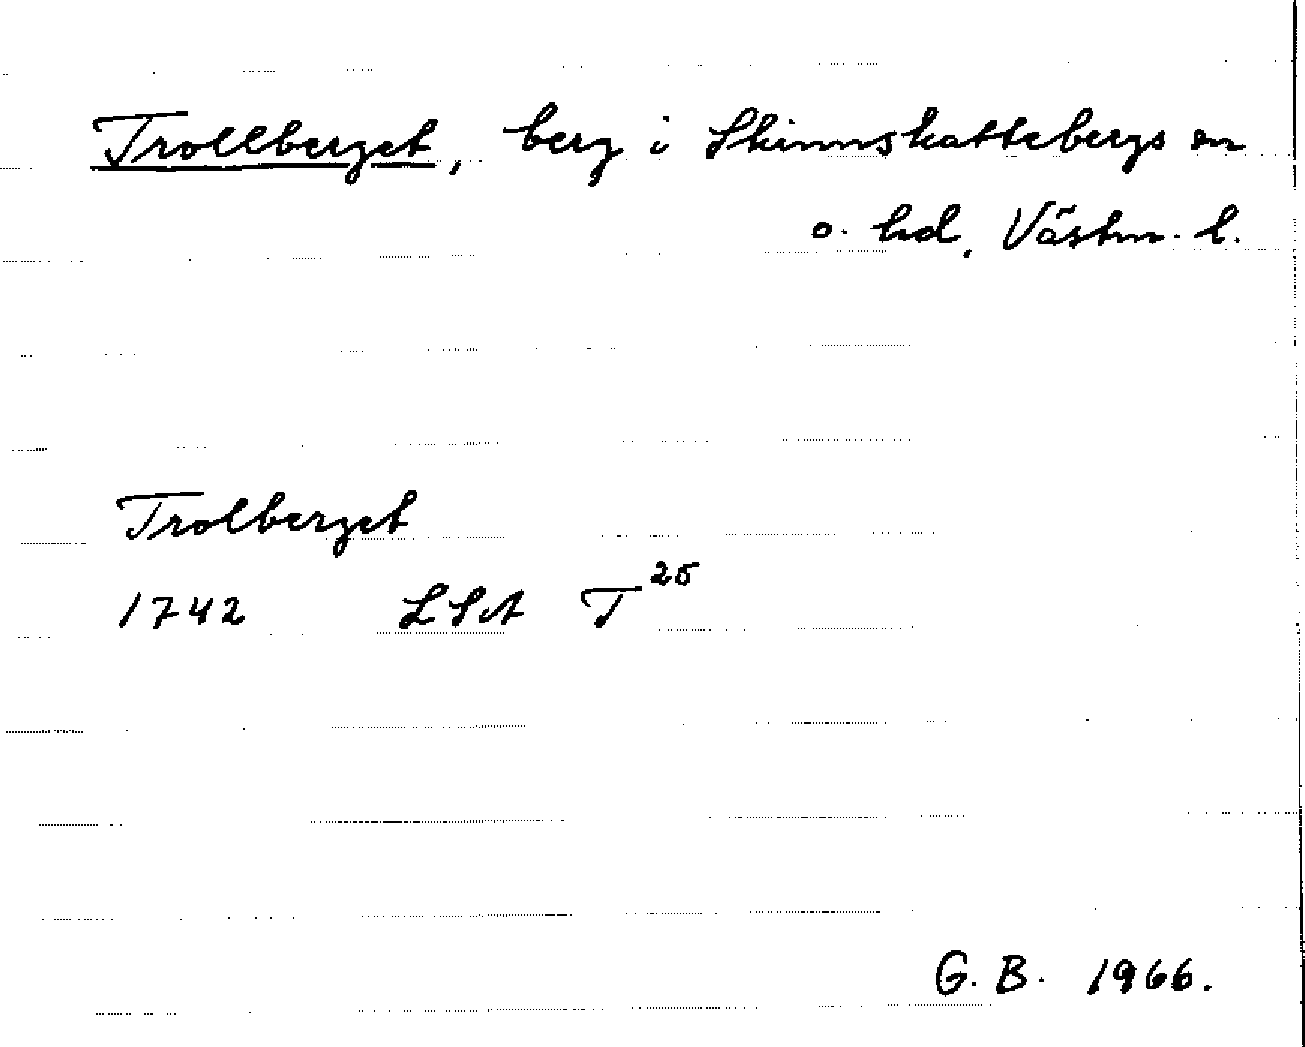 Trollberget, berg i Skinnskattebergs sn
o. hd, Västm. l.
Trolberget
1742 LSA T 25
G. B. 1966.